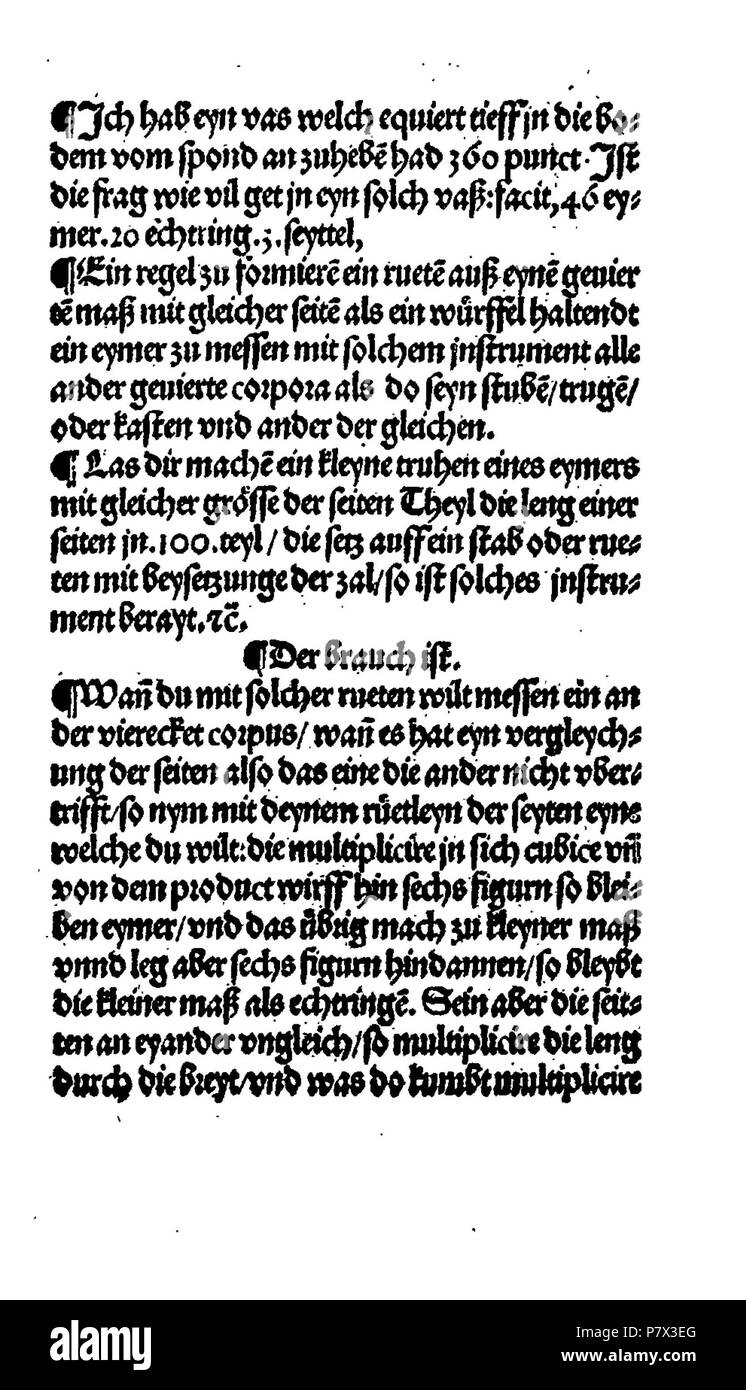 ¶Ich hab eyn vas welch equiert tieff jn die bo⸗
dem vom spond an zuhebē had 360 punct. Ist
die frag wie vil get jn eyn solch vaß: facit, 46 ey⸗
mer. 20 echtring. 3. seyttel,
¶Ein regel zu formierē ein ruetē auß eynē gevier
tē maß mit gleicher seitē als ein würffel haltendt
ein eymer zu messen mit solchem jnstrument alle
ander gevierte corpora als do seyn stubē/ trugē/
oder kasten vnd ander der gleichen.
¶ Las dir machē ein kleyne truhen eines eymers
mit gleicher grösse der seiten Theyl die leng einer
seiten jn. 100. teyl / die setz auff ein stab oder rue⸗
ten mit beysetzunge der zal/ so ist solches jnstru⸗
ment berayt. ⁊c̄.
¶Der brauch ist.
¶Wañ du mit solcher rueten wilt messen ein an
der vierecket corpus/ wañ es hat eyn vergleych⸗
ung der seiten also das eine die ander nicht vber⸗
trifft/ so nym mit deynem rüetleyn der seyten eyne
welche du wilt: die multiplicire jn sich cubice vñ
von dem product wirff hin sechs figurn so blei⸗
ben eymer/ vnd das übrig mach zu kleyner maß
vnnd leg aber sechs figurn hindannen/ so bleybt
die kleiner maß als echtringē. Sein aber die seit⸗
ten an eyander vngleich/ so multiplicire die leng
durch die breyt/ vnd was do kumbt multiplicire
alamy
Image ID: P7X3EG
www.alamy.com